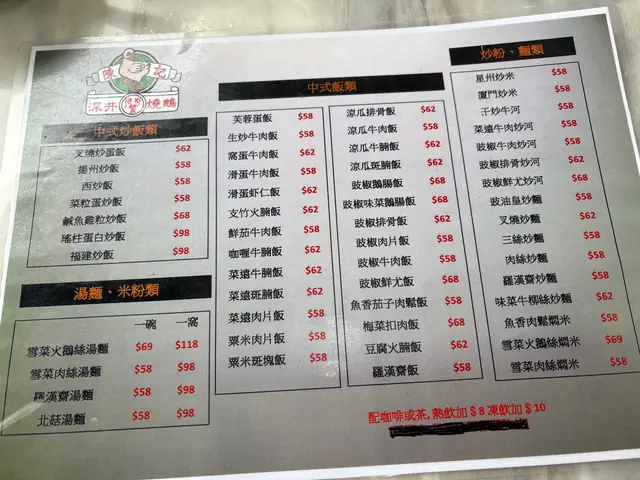 陳記
深井燒鵝
中式炒飯類
叉燒炒蛋飯 $62
揚州炒飯 $58
西炒飯 $58
菜粒蛋炒飯 $58
鹹魚雞粒炒飯 $68
瑤柱蛋白炒飯 $98
福建炒飯 $98
湯麵、米粉類
一碗 一窩
雪菜火鵝絲湯麵 $69 $118
雪菜肉絲湯麵 $58 $98
羅漢齋湯麵 $58 $98
北菇湯麵 $58 $98
中式飯類
芙蓉蛋飯 $58
生炒牛肉飯 $58
窩蛋牛肉飯 $62
滑蛋牛肉飯 $58
滑蛋蝦仁飯 $62
支竹火腩飯 $62
鮮茄牛肉飯 $58
咖喱牛腩飯 $62
菜遠牛腩飯 $62
菜遠斑腩飯 $62
菜遠肉片飯 $58
粟米肉粒飯 $58
粟米斑塊飯 $58
涼瓜排骨飯 $62
涼瓜牛肉飯 $58
涼瓜牛腩飯 $62
涼瓜斑腩飯 $62
豉椒鵝腸飯 $68
豉椒味菜鵝腸飯 $68
豉椒排骨飯 $62
豉椒肉片飯 $58
豉椒牛肉飯 $58
豉椒鮮尤飯 $68
魚香茄子肉鬆飯 $58
梅菜扣肉飯 $68
豆腐火腩飯 $62
羅漢齋飯 $58
炒粉、麵類
星州炒米 $58
廈門炒米 $58
干炒牛河 $58
菜遠牛肉炒河 $58
豉椒牛肉炒河 $58
豉椒排骨炒河 $62
豉椒鮮尤炒河 $68
豉油皇炒麵 $58
叉燒炒麵 $62
三絲炒麵 $58
肉絲炒麵 $58
羅漢齋炒麵 $58
味菜牛柳絲炒麵 $62
魚香肉鬆燜米 $58
雪菜火鵝絲燜米 $69
雪菜肉絲燜米 $58
配咖啡或茶,熱飲加$8凍飲加$10